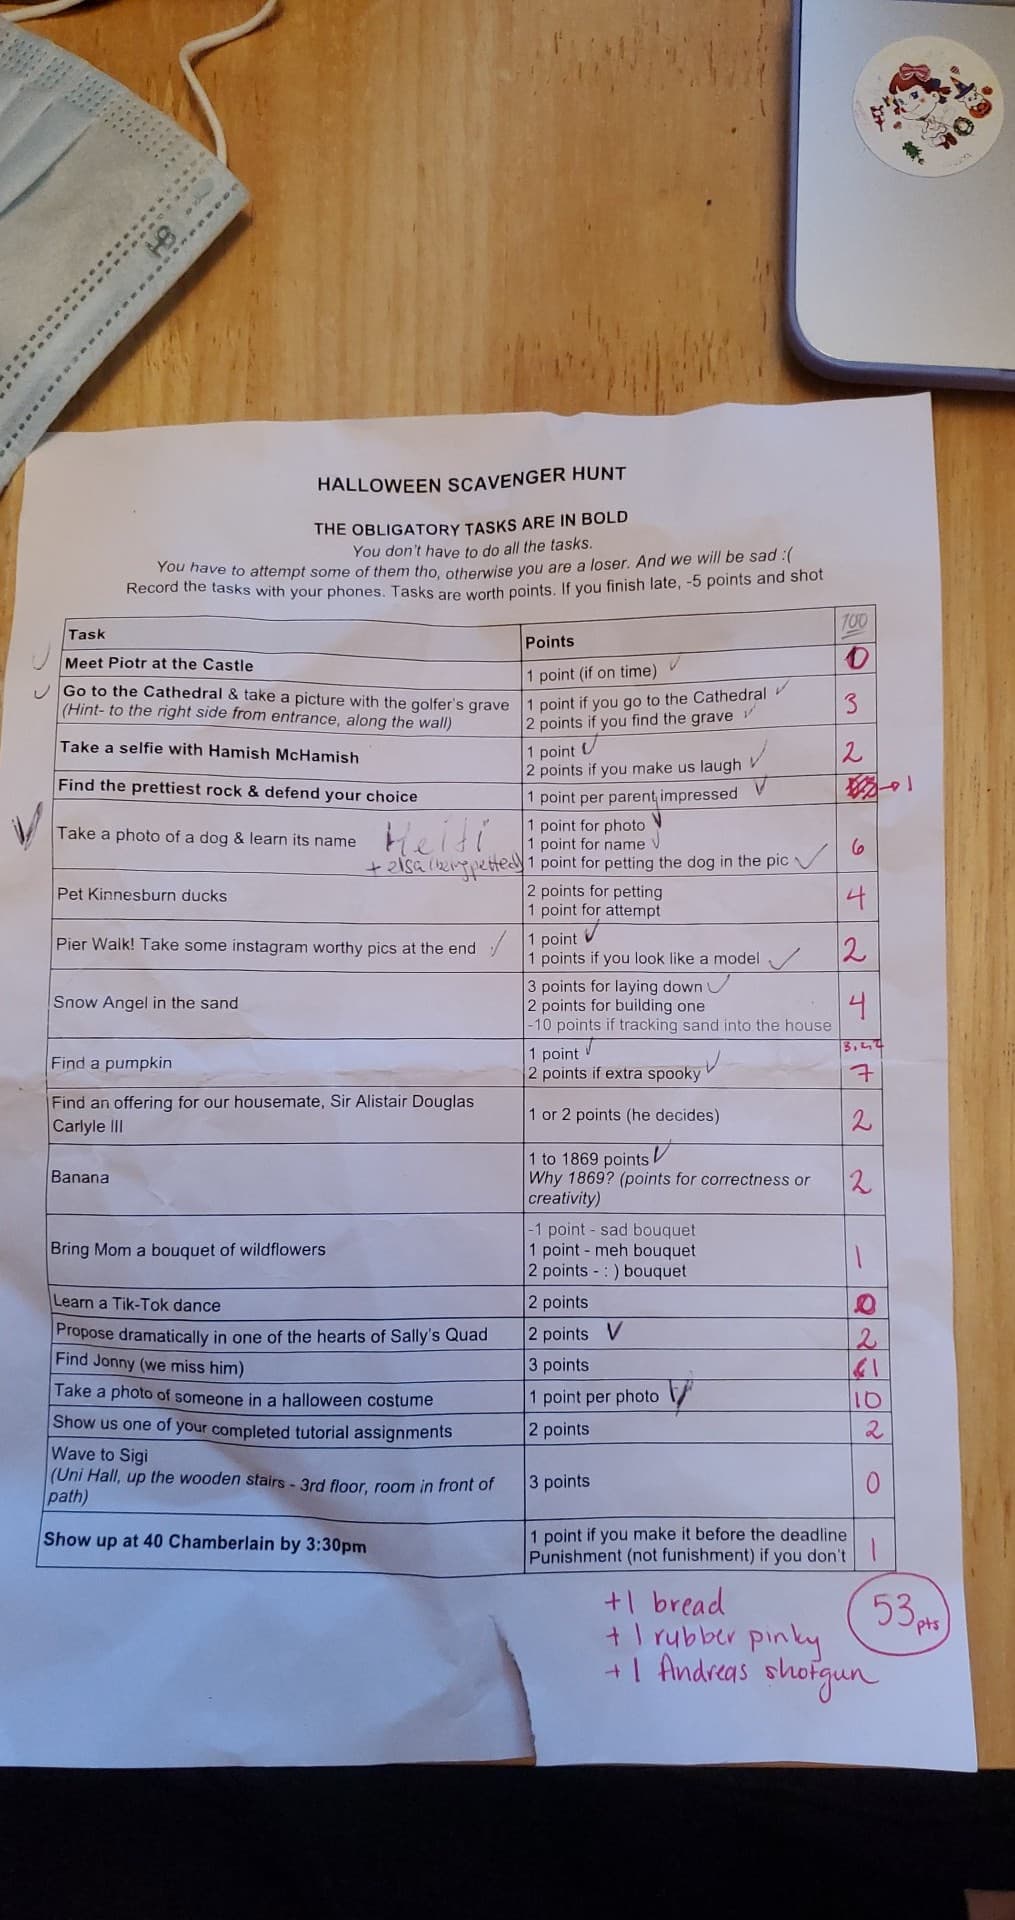 HB
HALLOWEEN SCAVENGER HUNT
THE OBLIGATORY TASKS ARE IN BOLD
You don't have to do all the tasks.
You have to attempt some of them tho, otherwise you are a loser. And we will be sad :(
Record the tasks with your phones. Tasks are worth points. If you finish late, -5 points and shot
Task
Points
100
Meet Piotr at the Castle
1 point (if on time) ✓
0
Go to the Cathedral & take a picture with the golfer's grave
(Hint- to the right side from entrance, along the wall)
1 point if you go to the Cathedral ✓
2 points if you find the grave ✓
3
Take a selfie with Hamish McHamish
1 point ✓
2 points if you make us laugh ✓
2
Find the prettiest rock & defend your choice
1 point per parent impressed ✓
→ 1
Take a photo of a dog & learn its name
Heiti
+ elsa (being petted)
1 point for photo ✓
1 point for name ✓
1 point for petting the dog in the pic ✓
6
Pet Kinnesburn ducks
2 points for petting
1 point for attempt
4
Pier Walk! Take some instagram worthy pics at the end ✓
1 point ✓
1 points if you look like a model ✓
2
Snow Angel in the sand
3 points for laying down ✓
2 points for building one
-10 points if tracking sand into the house
4
Find a pumpkin
1 point ✓
2 points if extra spooky ✓
7
Find an offering for our housemate, Sir Alistair Douglas
Carlyle III
1 or 2 points (he decides)
2
Banana
1 to 1869 points ✓
Why 1869? (points for correctness or
creativity)
2
Bring Mom a bouquet of wildflowers
-1 point - sad bouquet
1 point - meh bouquet
2 points - : ) bouquet
1
Learn a Tik-Tok dance
2 points
0
Propose dramatically in one of the hearts of Sally's Quad
2 points ✓
2
Find Jonny (we miss him)
3 points
1
Take a photo of someone in a halloween costume
1 point per photo ✓
10
Show us one of your completed tutorial assignments
2 points
2
Wave to Sigi
(Uni Hall, up the wooden stairs - 3rd floor, room in front of
path)
3 points
0
Show up at 40 Chamberlain by 3:30pm
1 point if you make it before the deadline
Punishment (not funishment) if you don't
1
+1 bread
+1 rubber pinky
+1 Andreas shotgun
53 pts